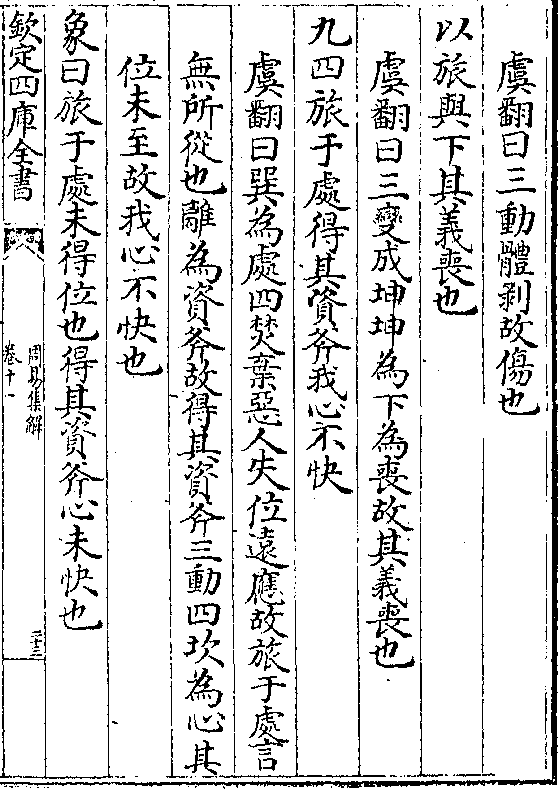 虞翻曰三動體剥故傷也
以旅與下其義喪也
虞翻曰三變成坤坤為下為喪故其義喪也
九四旅于處得其資斧我心不快
虞翻曰巽為處四焚棄惡人失位遠應故旅于處言
無所從也離為資斧故得其資斧三動四坎為心其
位未至故我心不快也
象曰旅于處未得位也得其資斧心未快也
欽定四庫全書
周易集解
卷十一
三十三